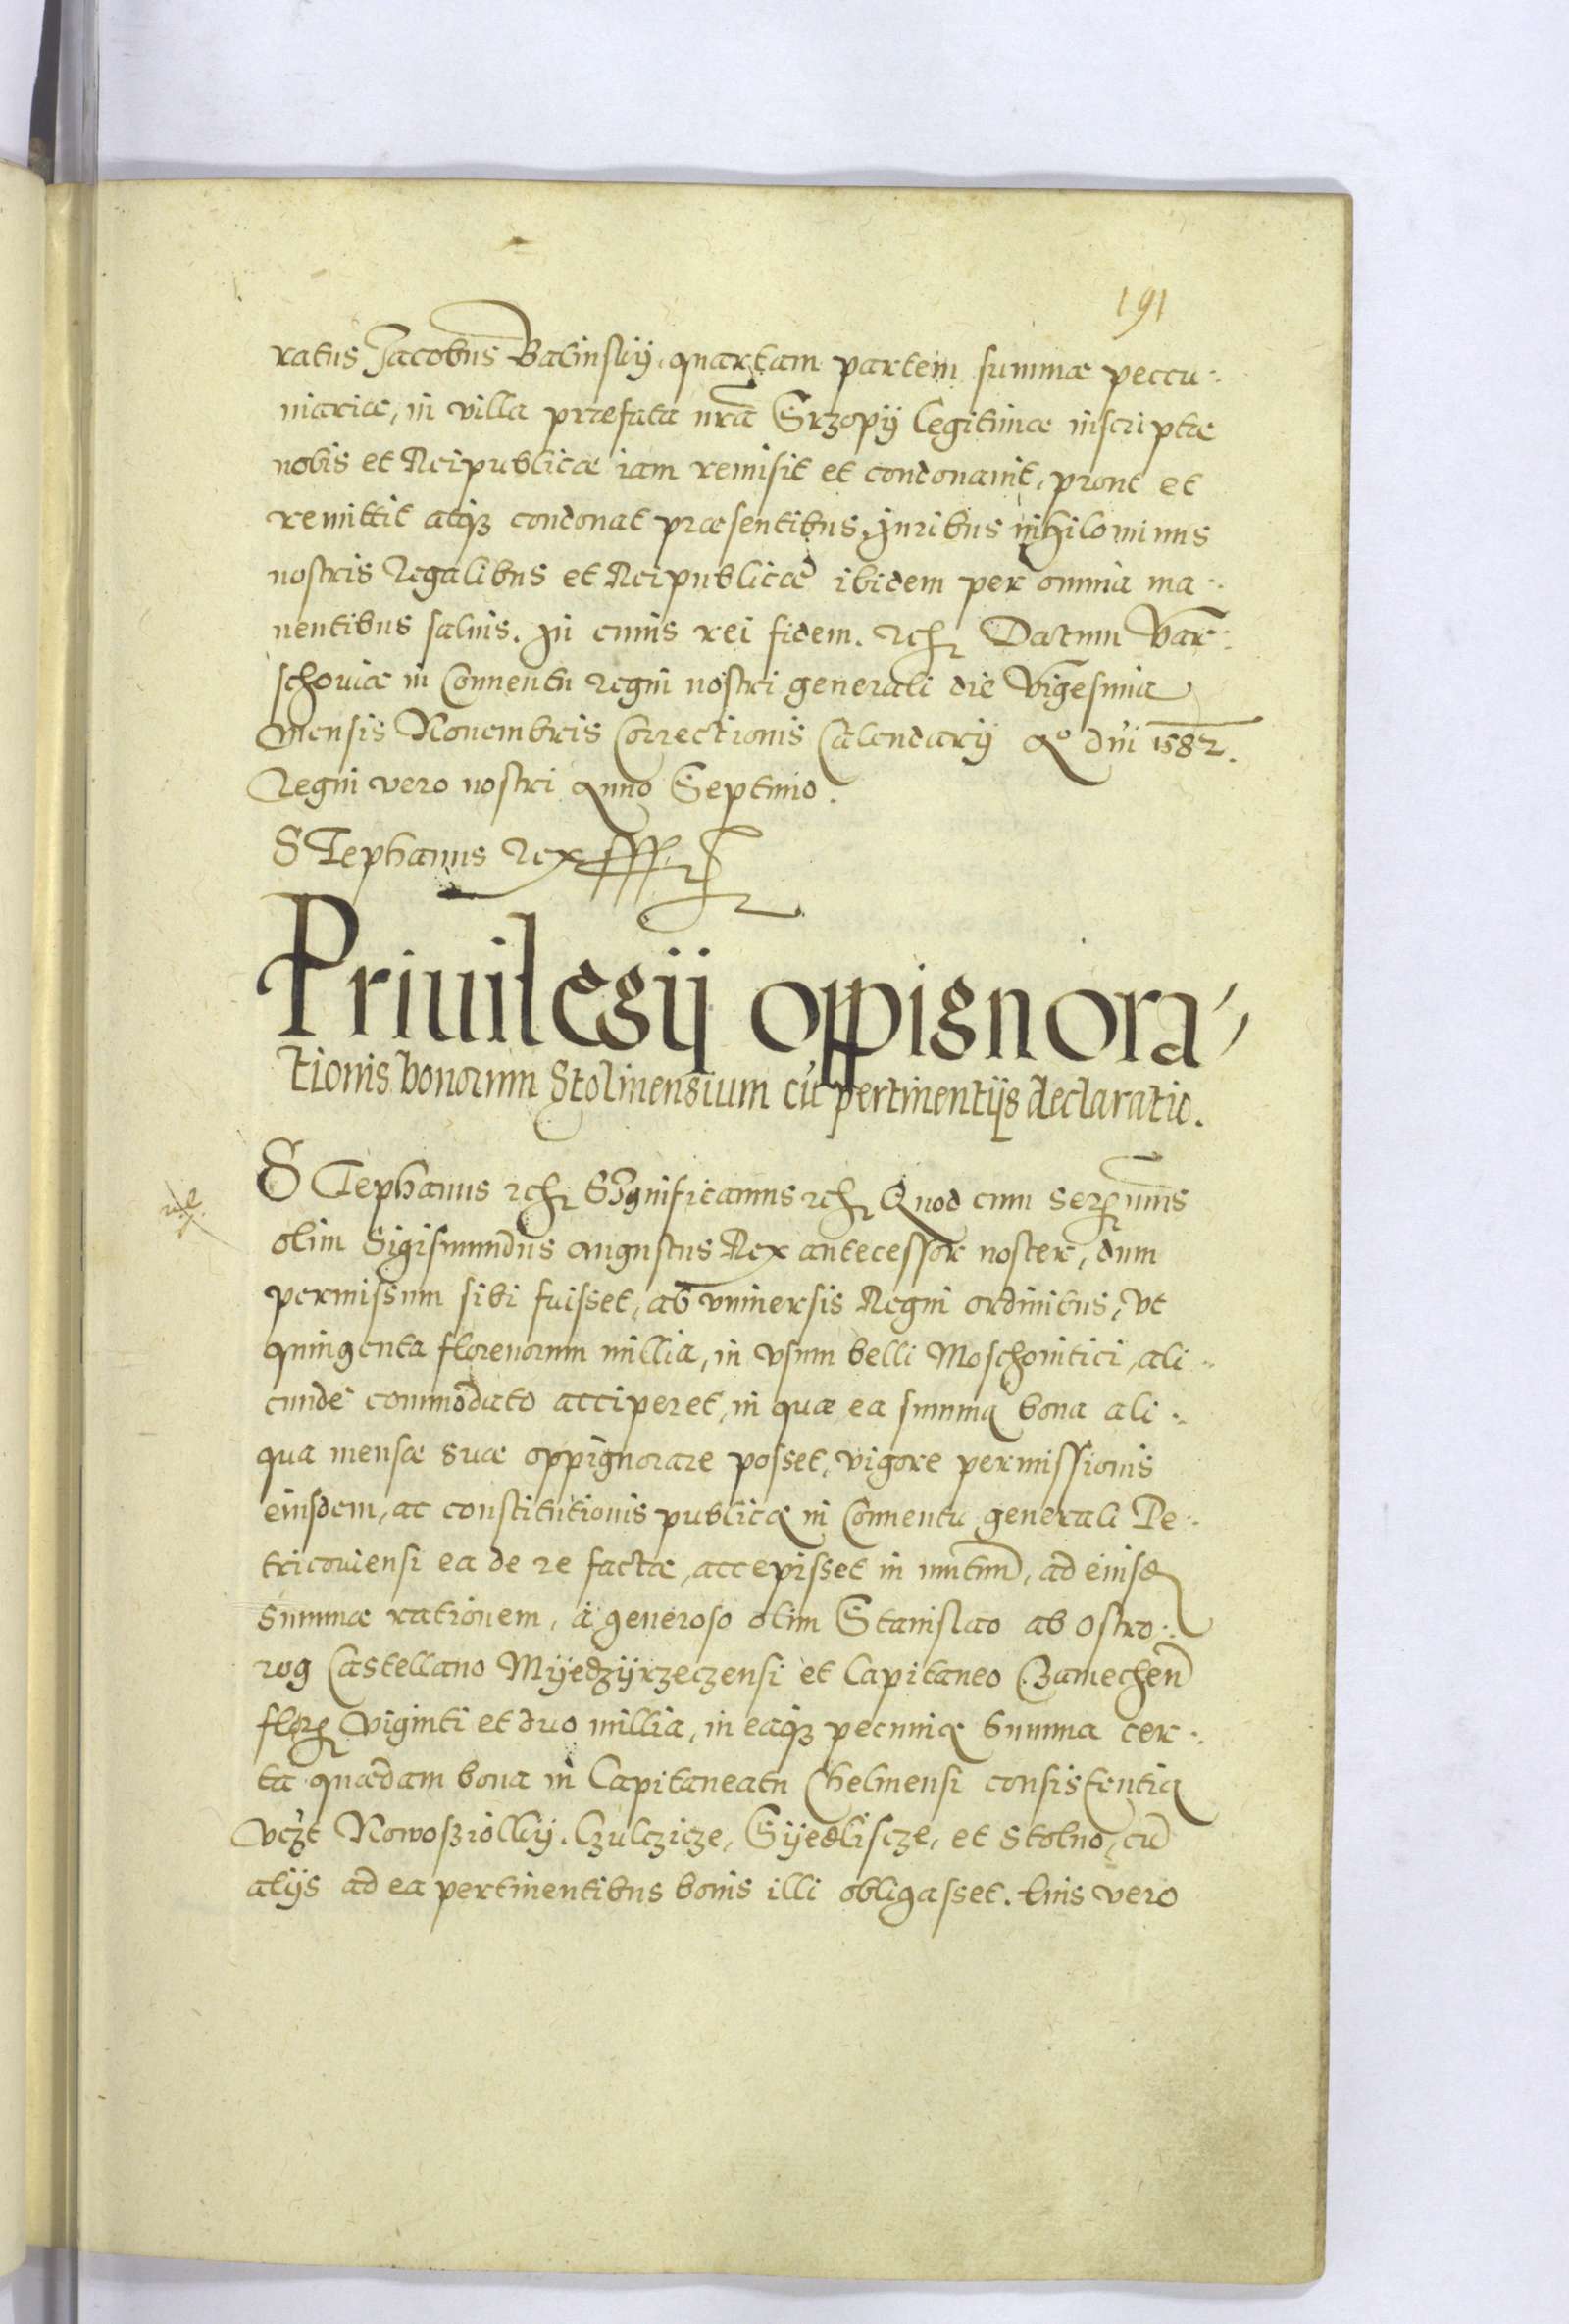 191
ratus Jacobus Balinskÿ, quartam partem summæ peccu-
niariæ, in villa præfata nrã Srzopÿ legitimæ inscriptæ
nobis et Reipublicæ iam remisit et condonauit, prout et
remittit atq₃ condonat præsentibus, Juribus nihilominus
nostris Regalibus et Reipublicæ ibidem per omnia ma-
nentibus saluis. In cuius rei fidem. etc. Datum Var-
schouiæ in Conuentu regni nostri generali die Vigesima
mensis Nouembris Correctionis Calendarÿ Aº dñi 1582.
Regni vero nostri Anno Septimo.
Stephanus Rex
Priuilegÿ oppignora-
tionis bonorum Stolinensium cũ pertinentÿs declaratio.
Stephanus etc. Significamus etc. Quod cum Sermus
olim Sigismundus Augustus Rex antecessor noster, dum
permissum sibi fuisset, ab vniuersis Regni ordinibus, vt
quingenta florenorum millia, in vsum belli Moschouitici, ali-
cunde commodato acciperet, in quæ ea summa bona ali-
qua mensæ suæ oppignorare posset, vigore permissionis
eiusdem, ac constitutionis publicæ in Conuentu generali Pe-
tricouiensi ea de re factæ, accepisset in mutuũ, ad eiusd
summæ rationem, à generoso olim Stanislao ab Ostro-
rog Castellano Mÿedzÿrzeczensi et Capitaneo Czamecheñ
flor. viginti et duo millia, in eaq₃ pecuniæ summa cer-
ta quædam bona in Capitaneatu Chelmensi consistentia
vczt Nowosziolkÿ. Czulczicze, Sÿedliscze, et Stolno, cũ
alÿs ad ea pertinentibus bonis illi obligasset. Cuis vero